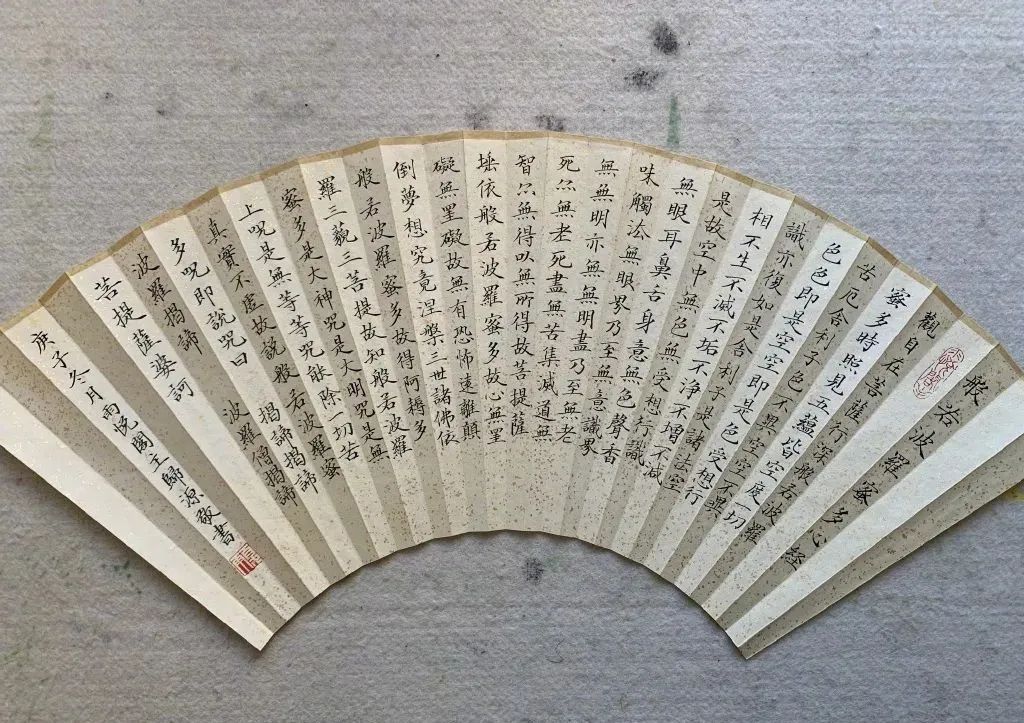 般若波羅蜜多心経
觀自在菩薩行深般若波羅
蜜多時照見五蘊皆空度一切
苦厄舍利子色不異空空不異
色色即是空空即是色受想行
識亦復如是舍利子是諸法空
相不生不滅不垢不净不增不減
是故空中無色無受想行識
無眼耳鼻舌身意無色聲香
味觸法無眼界乃至無意識界
無無明亦無無明盡乃至無老
死亦無老死盡無苦集滅道無
智亦無得以無所得故菩提薩
埵依般若波羅蜜多故心無罣
礙無罣礙故無有恐怖遠離顛
倒夢想究竟涅槃三世諸佛依
般若波羅蜜多故得阿耨多
羅三藐三菩提故知般若波羅
蜜多是大神咒是大明咒是無
上咒是無等等咒能除一切苦
真實不虛故説般若波羅蜜
多咒即説咒曰 揭諦揭諦
波羅揭諦 波羅僧揭諦
菩提薩婆訶
庚子冬月雨悦閣主歸源敬書